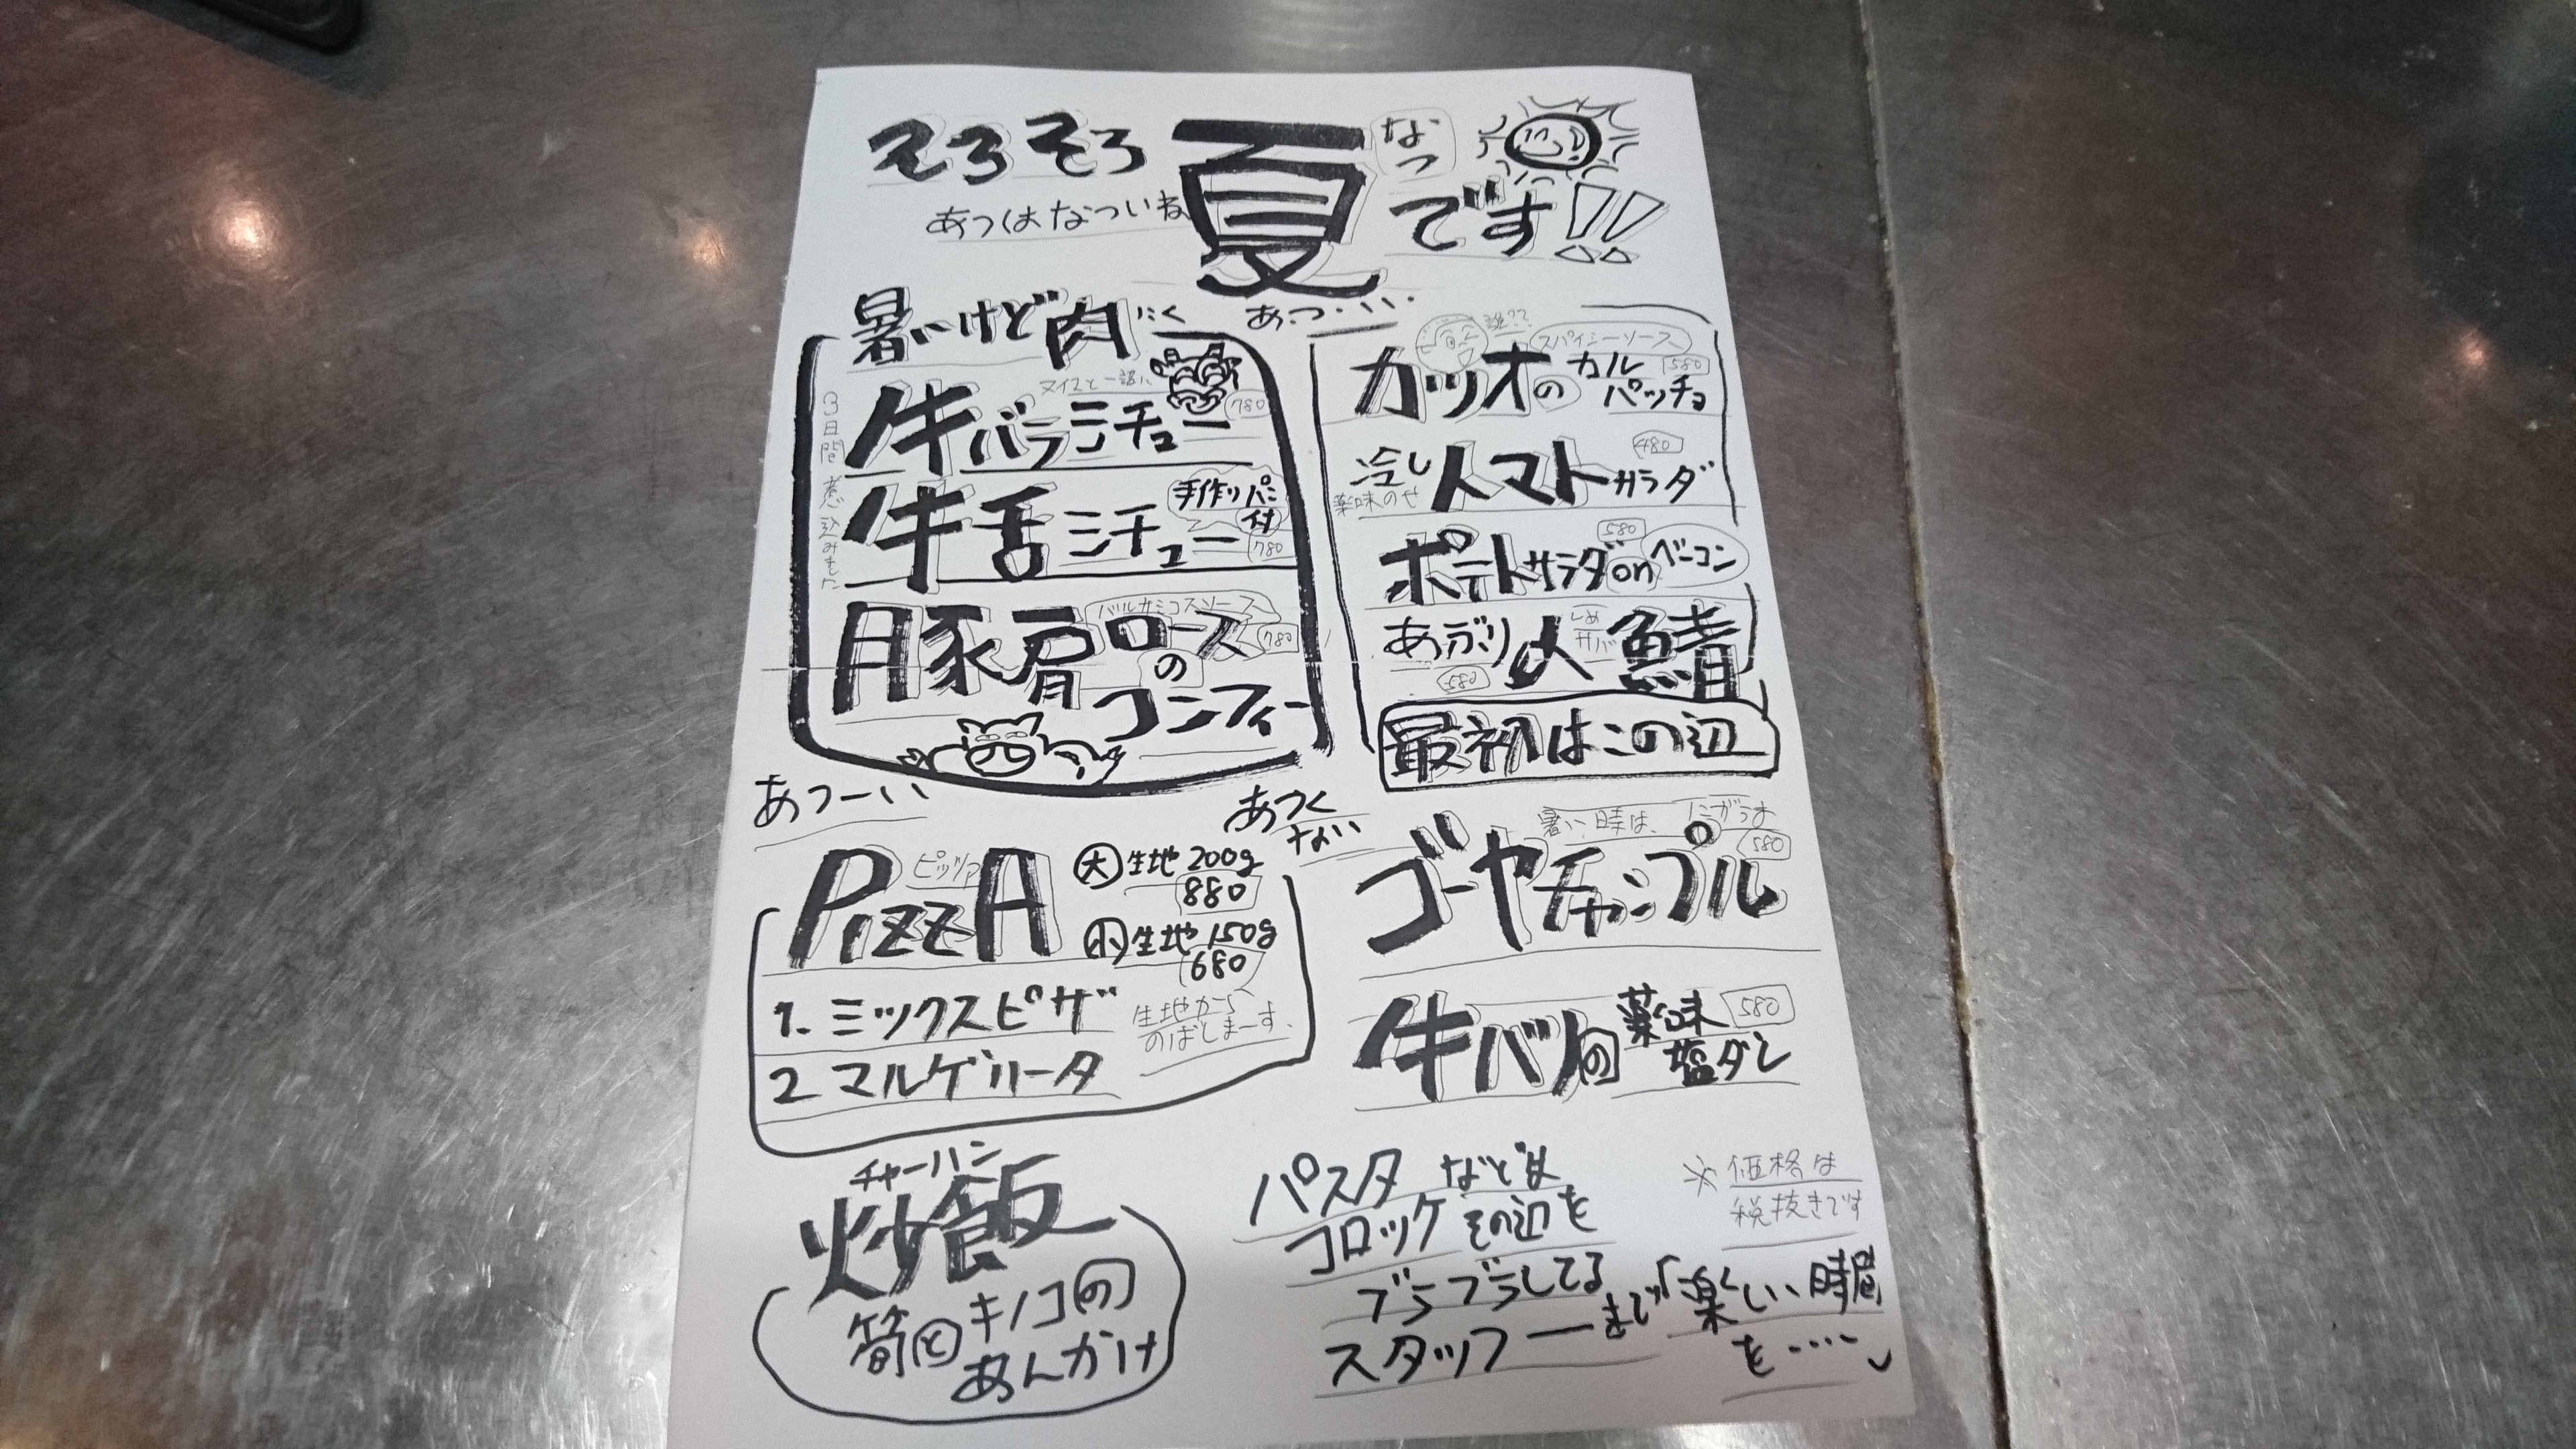 そろそろ 夏 なつ です!!
あつはなついね
あ・つ・い・
暑いけど肉 にく
3日間煮込みました
牛バラシチュー 780
牛舌シチュー 手作りパン付 780
豚肩ロースのコンフィー バルサミコスソース 780
誰??
スパイシーソース
カツオのカルパッチョ 580
冷しトマトサラダ 480
薬味のせ
ポテトサラダonベーコン 580
あぶり〆鯖 しめサバ 580
最初はこの辺
あつーい
あつくない
PizzA ピッツァ
大 生地 200g
880
小 生地 150g
680
1. ミックスピザ
2 マルゲリータ
生地から
のばしまーす.
暑い時は、にがうま
ゴーヤチャンプル 580
牛バラの薬味塩ダレ 580
チャーハン
炒飯
筍とキノコの
あんかけ
パスタ などは
コロッケ その辺を
ブラブラしてる
スタッフーまで
※価格は
税抜きです
「楽しい時間
を‥‥」